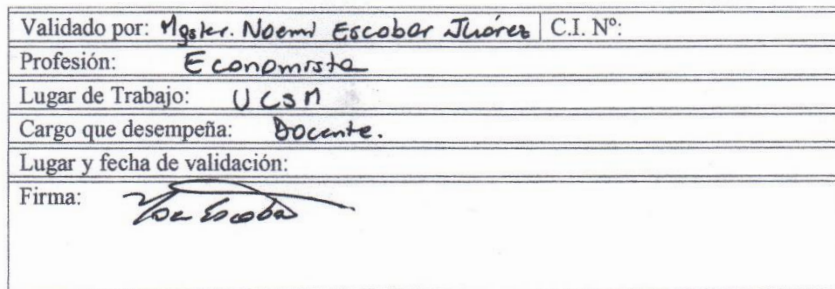 Validado por: Mgster. Noemi Escobar Juárez C.I. Nº:
Profesión: Economista
Lugar de Trabajo: UCSM
Cargo que desempeña: Docente.
Lugar y fecha de validación:
Firma: Escobar